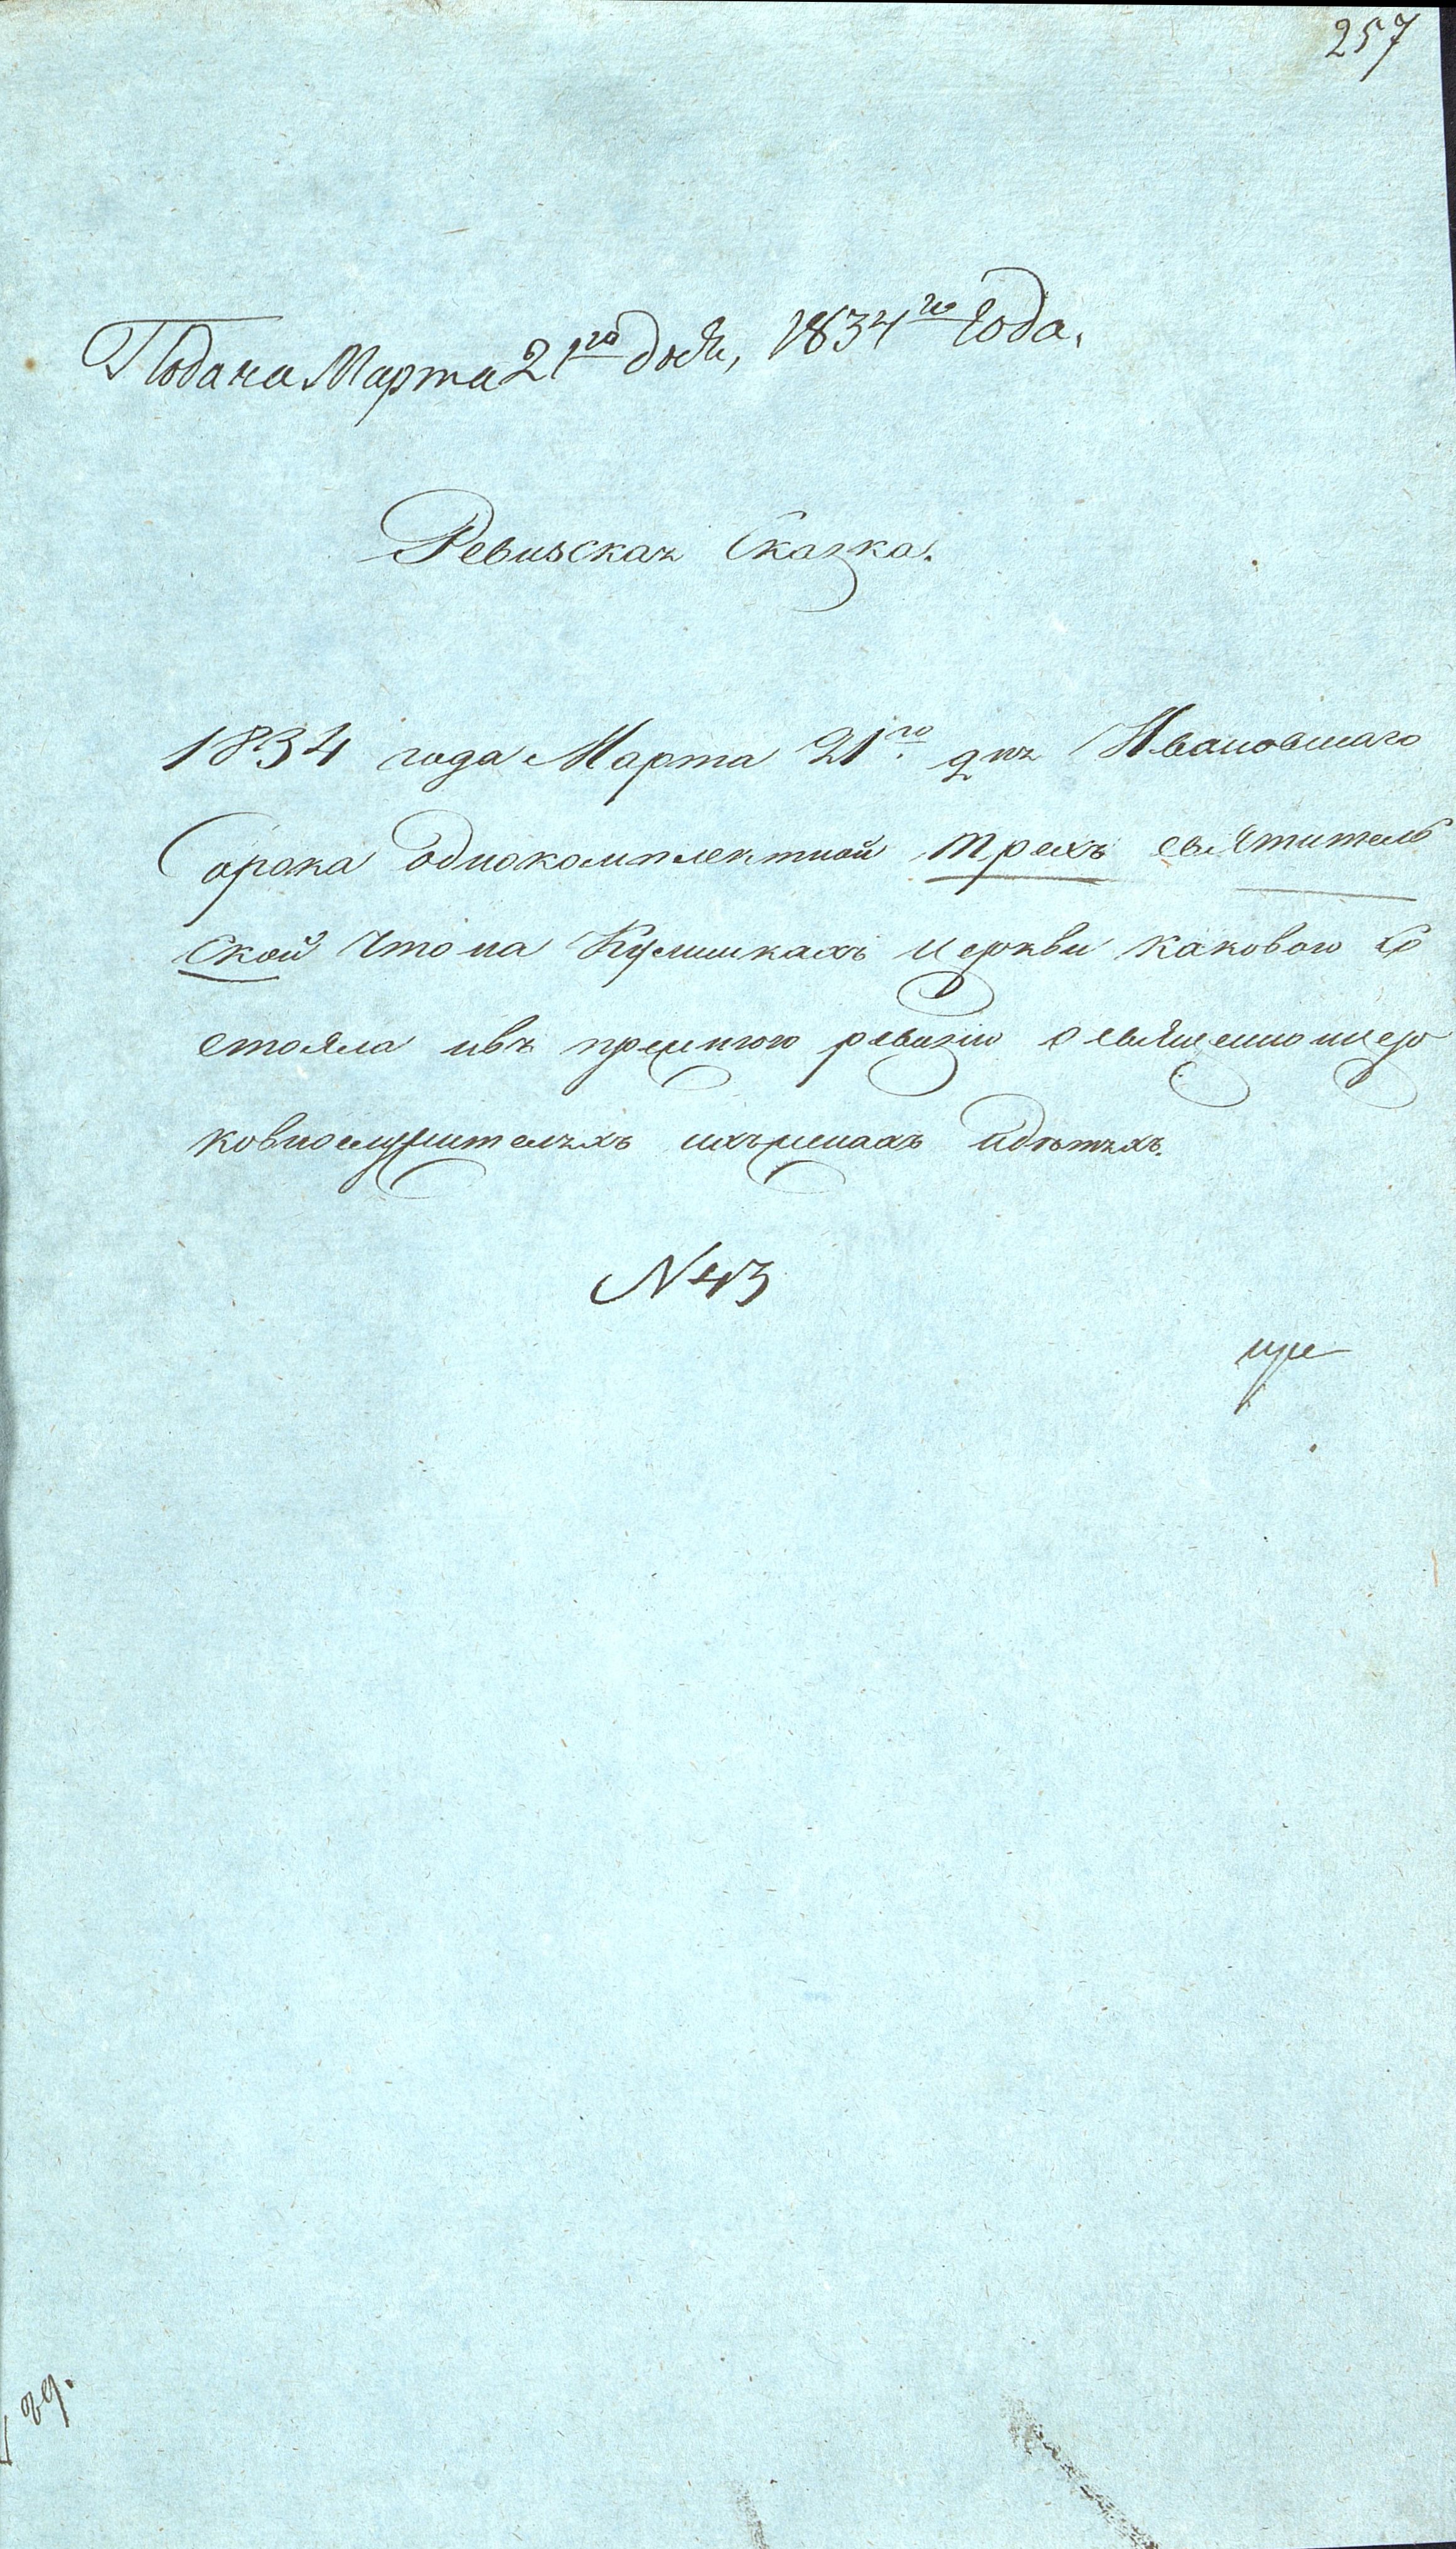 257
Подана Марта 21го дня, 1834го года.
Ревизская Сказка.
1834 года Марта 21го дня Ивановскаго
Сорока однокомплектной трехъ святитель
ской что на Кулишкахъ церкви каковою со
стояла ивъ прешнюю ревизію о священноцер
ковнослужителяхъ ихъ женахъ идѣтяхъ.
N 43